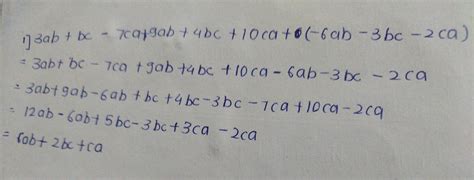 1) 3ab + bc - 7ca + 9ab + 4bc + 10ca + (-6ab - 3bc - 2ca)
= 3ab + bc - 7ca + 9ab + 4bc + 10ca - 6ab - 3bc - 2ca
= 3ab + 9ab - 6ab + bc + 4bc - 3bc - 7ca + 10ca - 2ca
= 12ab - 6ab + 5bc - 3bc + 3ca - 2ca
= 6ab + 2bc + ca